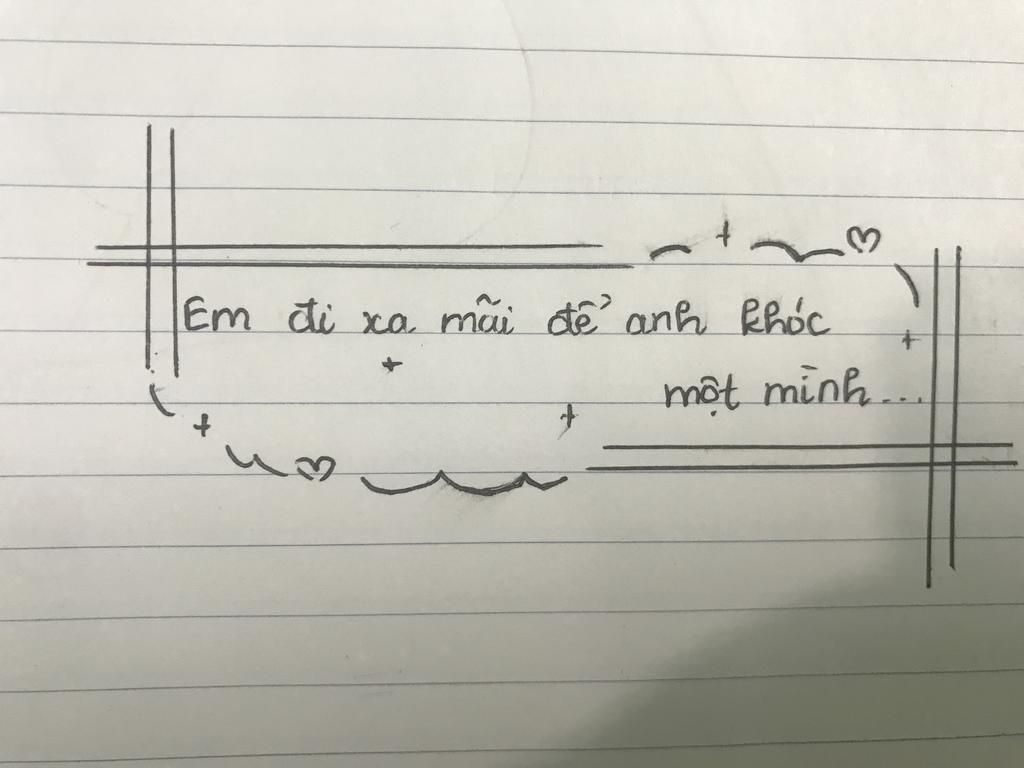 Em đi xa mãi để anh khóc
một mình...